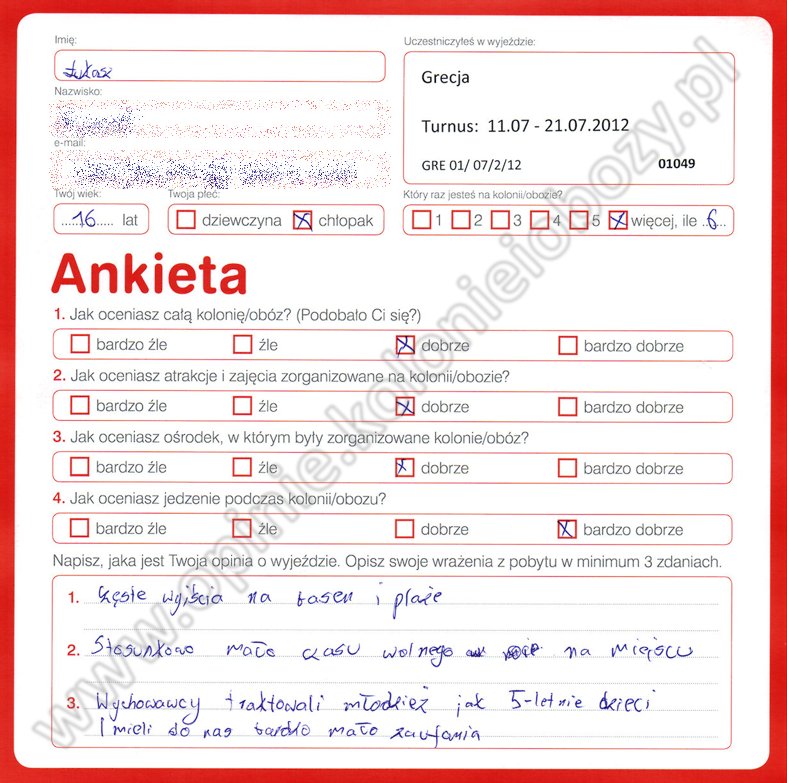 Imię:
Łukasz
Nazwisko:
e-mail:
Twój wiek:
16 lat
Twoja płeć:
dziewczyna chłopak
Uczestniczyłeś w wyjeździe:
Grecja
Turnus: 11.07 - 21.07.2012
GRE 01/ 07/2/12 01049
Który raz jesteś na kolonii/obozie?
1 2 3 4 5 więcej, ile 6
Ankieta
1. Jak oceniasz całą kolonię/obóz? (Podobało Ci się?)
bardzo źle źle dobrze bardzo dobrze
2. Jak oceniasz atrakcje i zajęcia zorganizowane na kolonii/obozie?
bardzo źle źle dobrze bardzo dobrze
3. Jak oceniasz ośrodek, w którym były zorganizowane kolonie/obóz?
bardzo źle źle dobrze bardzo dobrze
4. Jak oceniasz jedzenie podczas kolonii/obozu?
bardzo źle źle dobrze bardzo dobrze
Napisz, jaka jest Twoja opinia o wyjeździe. Opisz swoje wrażenia z pobytu w minimum 3 zdaniach.
1. Częste wyjścia na basen i plaże
2. Stosunkowo mało czasu wolnego na miejscu
3. Wychowawcy traktowali młodzież jak 5-letnie dzieci
I mieli do nas bardzo mało zaufania
www.opinie.kolonieiobozy.pl